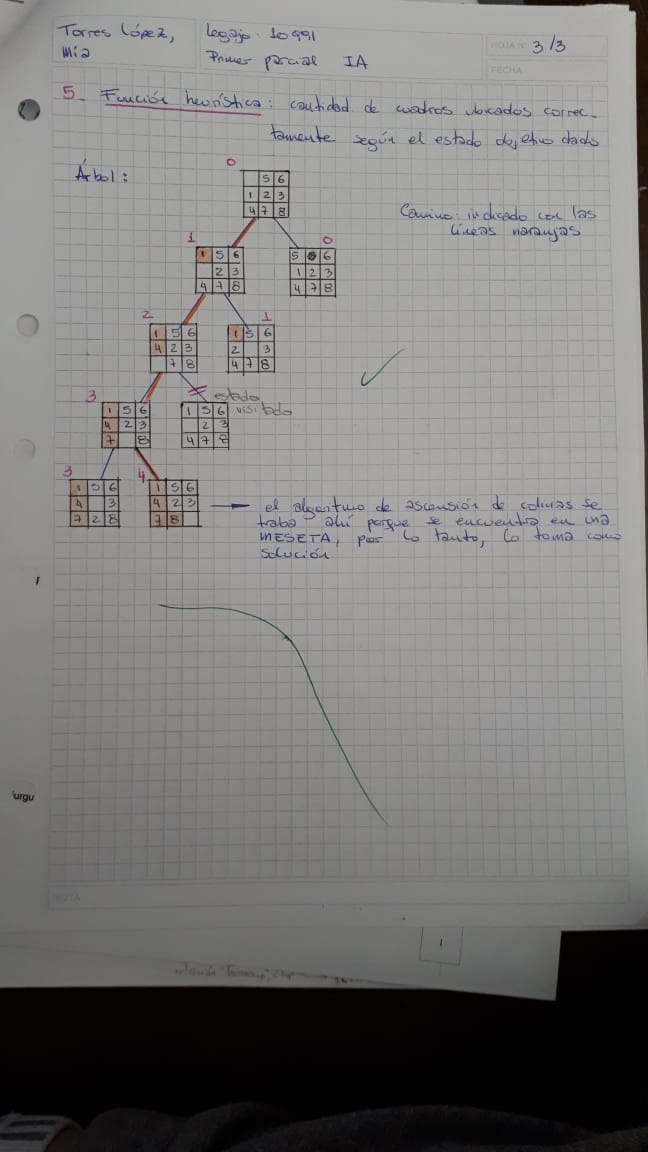 Torres López, Legajo: 10991
Mía Primer parcial IA
HOJA N° 3/3
FECHA
5_ Función heurística: cantidad de cuadros ubicados correc-
tamente según el estado objetivo dado
Árbol:
0
5 6
1 2 3
4 7 8
Camino: indicado con las
líneas naranjas
1 0
1 5 6 5 6
2 3 1 2 3
4 7 8 4 7 8
2 1
1 5 6 1 5 6
4 2 3 2 3
7 8 4 7 8
estado
visitado
3
1 5 6 1 5 6
4 2 3 2 3
7 8 4 7 8
3 4
1 5 6 1 5 6
4 3 4 2 3
7 2 8 7 8
el algoritmo de ascensión de colinas se
traba ahí porque se encuentra en una
MESETA, por lo tanto, lo toma como
solución
NOTA
urgu
1